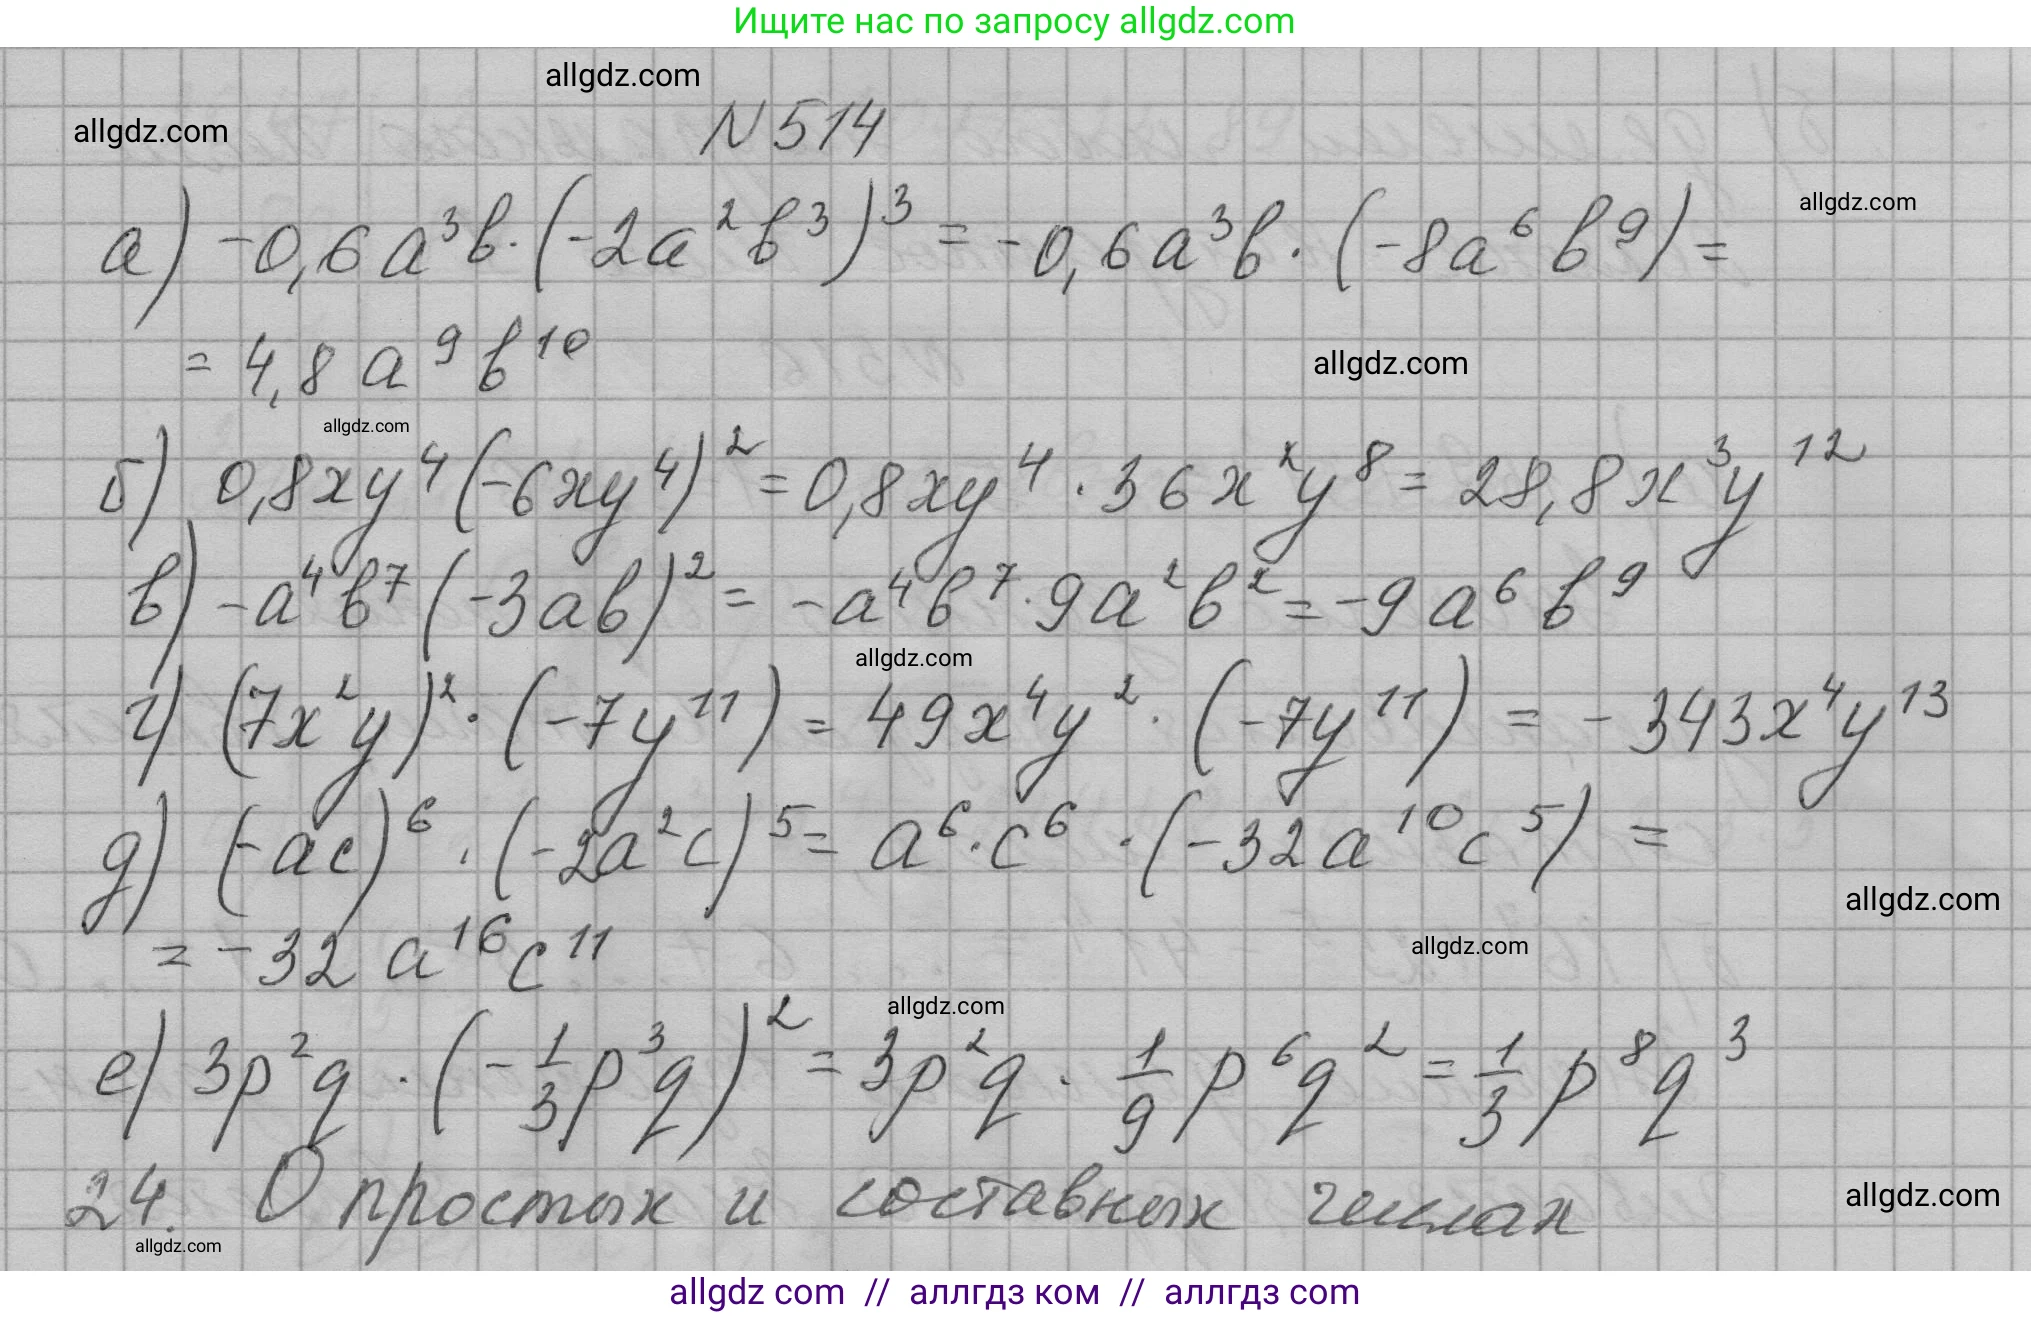 Ищите нас по запросу allgdz.com
allgdz.com
allgdz.com
N 514
allgdz.com
а) -0,6a³b·(-2a²b³)³ = -0,6a³b·(-8a⁶b⁹) =
= 4,8a⁹b¹⁰
allgdz.com
allgdz.com
б) 0,8xy⁴(-6xy⁴)² = 0,8xy⁴·36x²y⁸ = 28,8x³y¹²
в) -a⁴b⁷(-3ab)² = -a⁴b⁷·9a²b² = -9a⁶b⁹
allgdz.com
г) (7x²y)²·(-7y¹¹) = 49x⁴y²·(-7y¹¹) = -343x⁴y¹³
д) (-ac)⁶·(-2a²c)⁵ = a⁶·c⁶·(-32a¹⁰c⁵) =
allgdz.com
= -32a¹⁶c¹¹
allgdz.com
allgdz.com
е) 3p²q·(-1/3p³q)² = 3p²q·1/9p⁶q² = 1/3p⁸q³
24. О простых и составных числах
allgdz.com
allgdz.com
allgdz com // аллгдз ком // аллгдз com